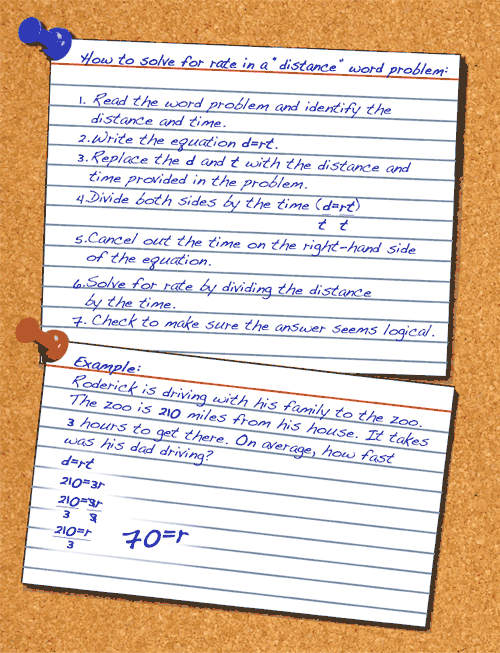 How to solve for rate in a "distance" word problem:
1. Read the word problem and identify the
distance and time.
2. Write the equation d=rt.
3. Replace the d and t with the distance and
time provided in the problem.
4. Divide both sides by the time (d=rt)
t t
5. Cancel out the time on the right-hand side
of the equation.
6. Solve for rate by dividing the distance
by the time.
7. Check to make sure the answer seems logical.
Example:
Roderick is driving with his family to the zoo.
The zoo is 210 miles from his house. It takes
3 hours to get there. On average, how fast
was his dad driving?
d=rt
210=3r
210=3r
3 3
210=r
3
70=r